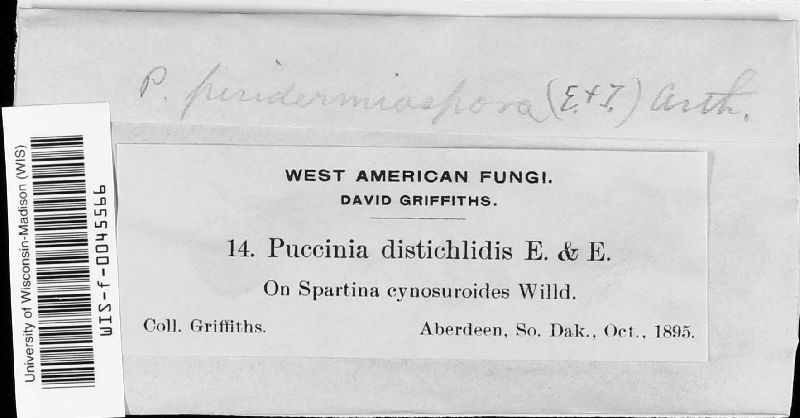 P. peridermiospora (E. & T.) Arth.
WEST AMERICAN FUNGI.
DAVID GRIFFITHS.
14. Puccinia distichlidis E. & E.
On Spartina cynosuroides Willd.
Coll. Griffiths. Aberdeen, So. Dak., Oct., 1895.
University of Wisconsin-Madison (WIS)
WIS-f-0045566